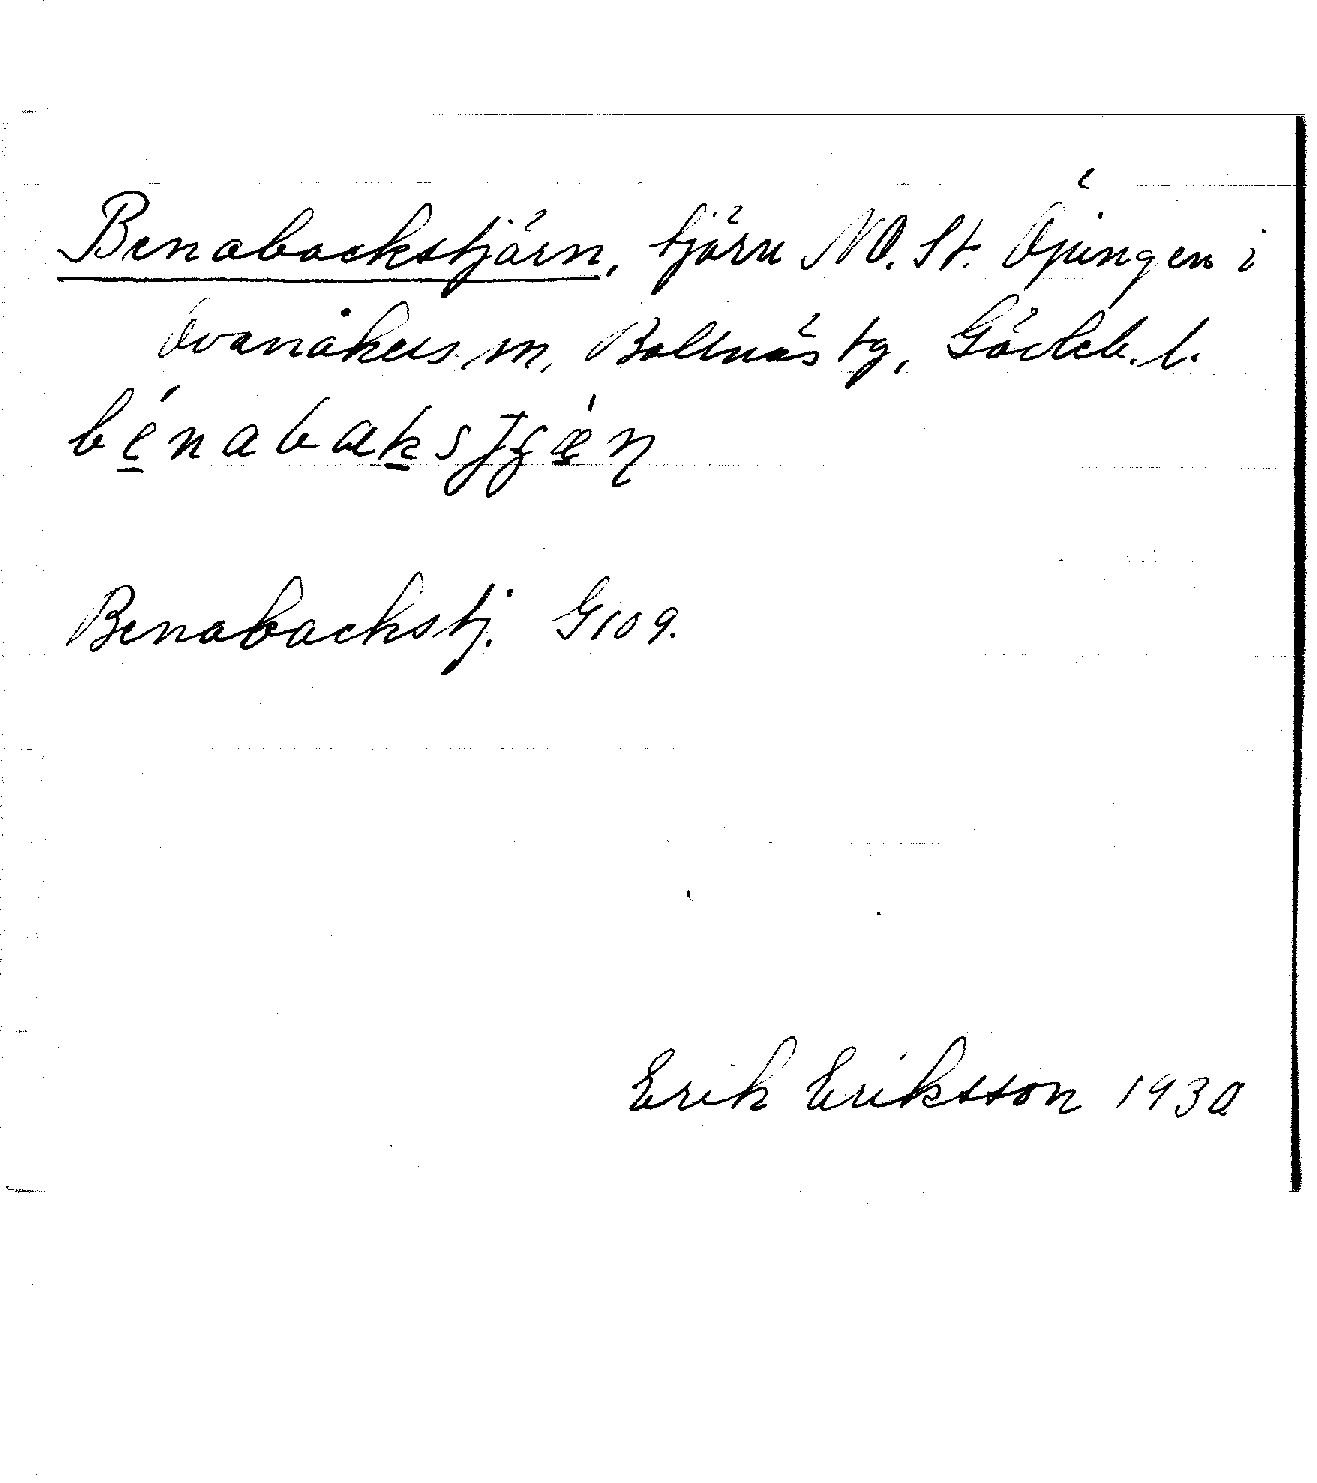 Benabackstjärn, tjärn NO. St. Öjungen i
Ovanåkers sn, Bollnäs tg, Gävleb. l.
Benabackstj. G109.
Erik Eriksson 1930